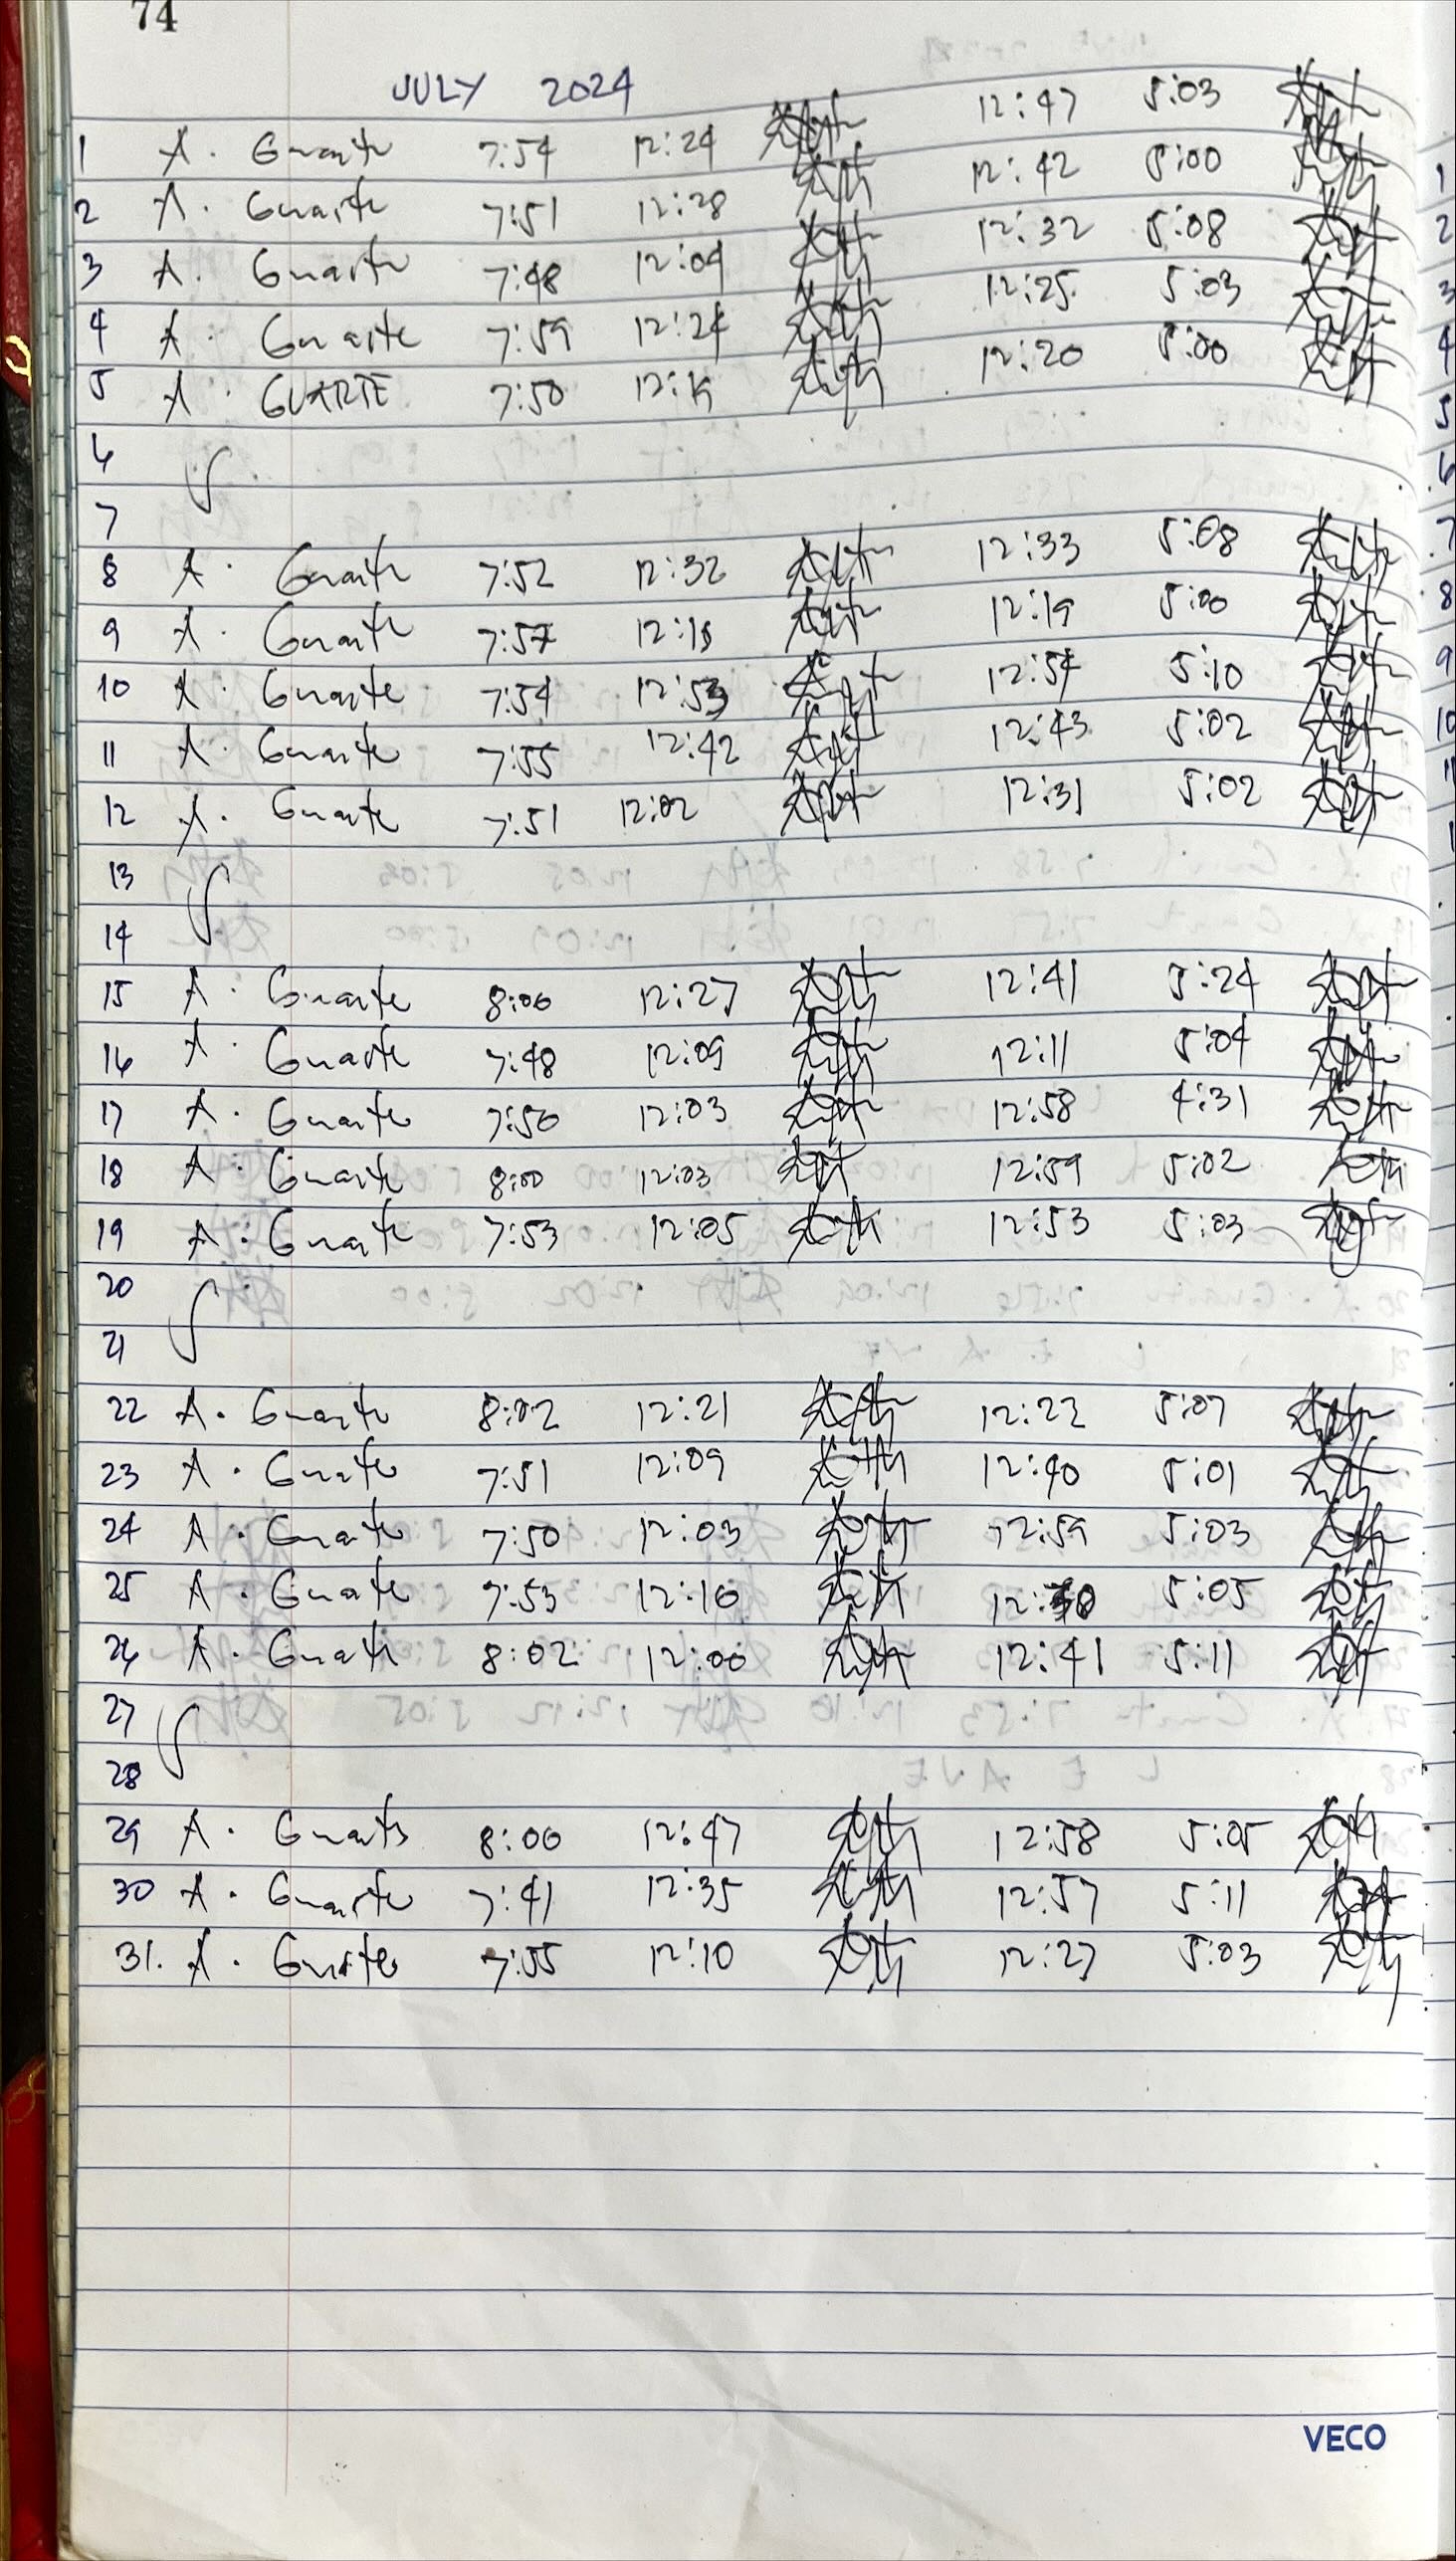 74
JULY 2024
1 A. Guarte 7:54 12:24 12:47 5:03
2 A. Guarte 7:51 12:28 12:42 5:00
3 A. Guarte 7:48 12:04 12:32 5:08
4 A. Guarte 7:59 12:24 12:25 5:03
5 A. GUARTE 7:50 12:20 5:00
6 S
7
8 A. Guarte 7:52 12:32 12:33 5:08
9 A. Guarte 7:57 12:18 12:19 5:00
10 A. Guarte 7:54 12:53 12:54 5:10
11 A. Guarte 7:55 12:42 12:43 5:02
12 A. Guarte 7:51 12:02 12:31 5:02
13 S
14
15 A. Guarte 8:00 12:27 12:41 5:24
16 A. Guarte 7:48 12:09 12:11 5:04
17 A. Guarte 7:50 12:03 12:58 4:31
18 A. Guarte 8:00 12:03 12:59 5:02
19 A. Guarte 7:53 12:05 12:53 5:03
20 S
21
22 A. Guarte 8:02 12:21 12:22 5:07
23 A. Guarte 7:51 12:09 12:40 5:01
24 A. Guarte 7:50 12:03 12:59 5:03
25 A. Guarte 7:53 12:10 5:05
26 A. Guarte 8:02 12:00 12:41 5:11
27 S
28
29 A. Guarte 8:00 12:47 12:58 5:05
30 A. Guarte 7:41 12:35 12:57 5:11
31. A. Guarte 7:55 12:10 12:27 5:03
VECO